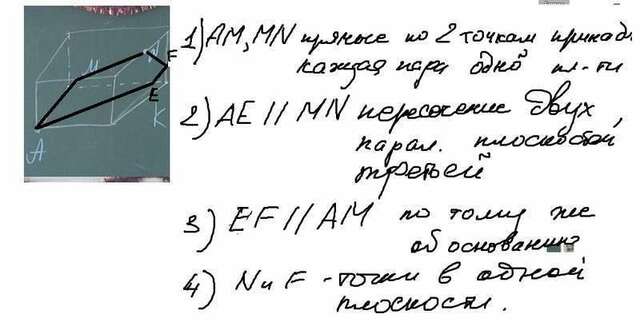 M
N
F
E
K
A
1) AM, MN прямые по 2 точкам принад
каждая пара одной пл-ти
2) AE // MN пересечение двух
парал. плоскостей
третьей
3) EF // AM по тому же
обоснованию
4) N и F - точки в одной
плоскости.